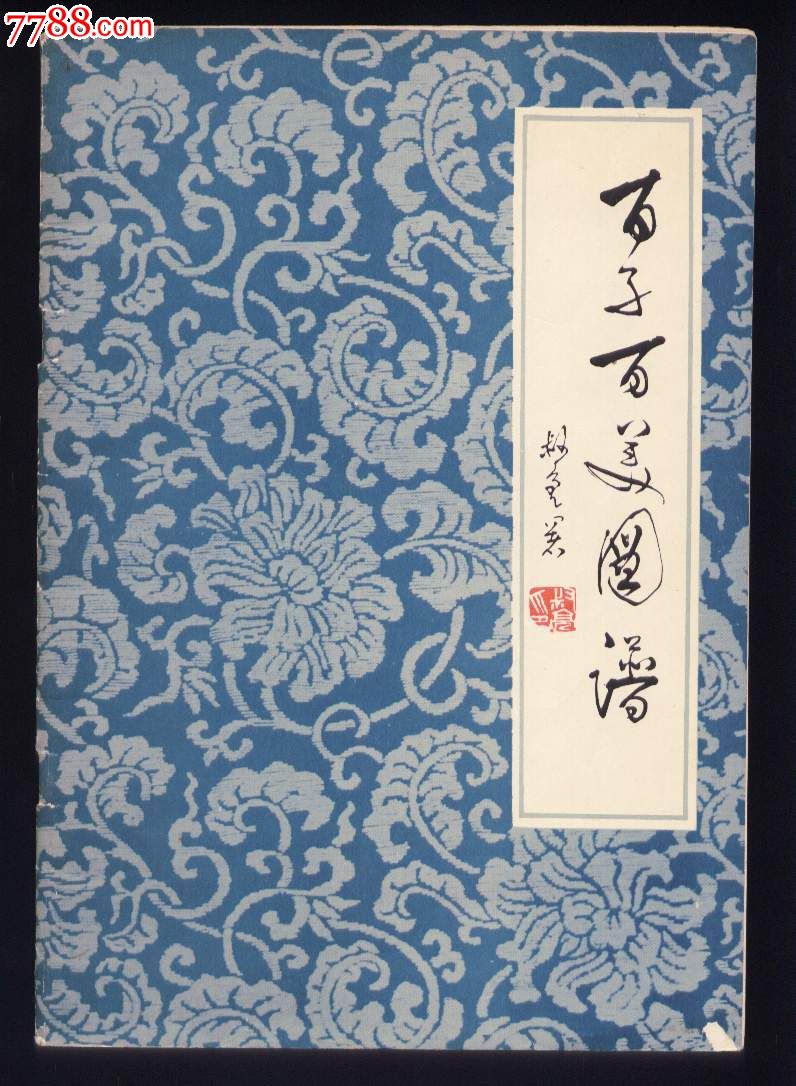 7788.com
百子百美图谱